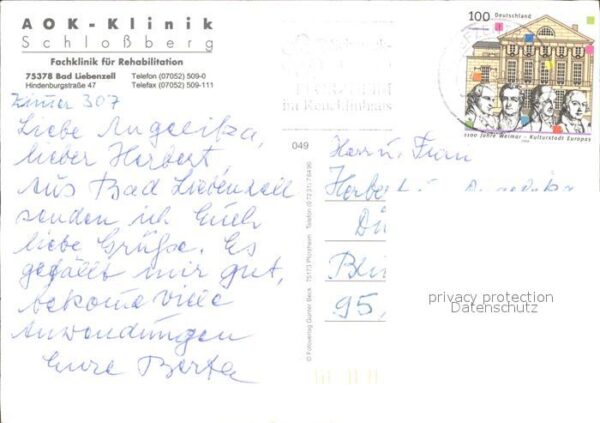 AOK-Klinik
Schloßberg
Fachklinik für Rehabilitation
75378 Bad Liebenzell Telefon (07052) 509-0
Hindenburgstraße 47 Telefax (07052) 509-111
Zimmer 307
Liebe Angelika,
lieber Herbert
Aus Bad Liebenzell
senden ich Euch
liebe Grüße. Es
gefällt mir gut,
bekome viele
Anwendungen
Eure Berta
im Reuchlinhaus
049
© Fotoverlag Günter Beck 75173 Pforzheim Telefon (07231)
100 Deutschland
1100 Jahre Weimar - Kulturstadt Europas
Herr u. Frau
Herbert u.
95
privacy protection
Datenschutz